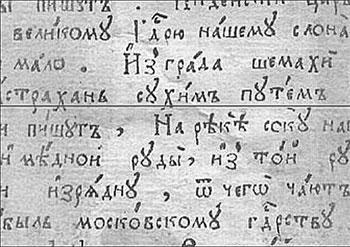 пишутъ .
великому Г҃дрю нашему слона
мало . И҆з̾ гра́да шемахи́
страхань сухи́мъ путе́мъ
и пи́шутъ , На рѣкѣ̀ соку на
и мѣ́днои руды̀ , и҆з̾ то́и ру
и и҆зря́дну , ѿ чегѡ̀ ча́ютъ
быль моско́вскому гд҃рству